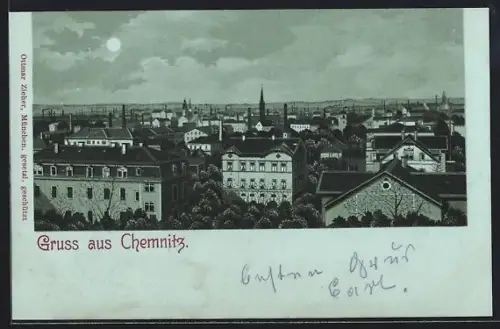 Ottmar Zieher, München. gesetzl. geschützt
Gruss aus Chemnitz.
Besten Gruß
Carl.